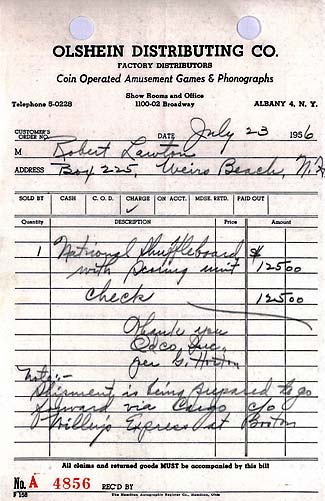 OLSHEIN DISTRIBUTING CO.
FACTORY DISTRIBUTORS
Coin Operated Amusement Games & Phonographs
Show Rooms and Office
Telephone 5-0228 1100-02 Broadway ALBANY 4, N. Y.
CUSTOMER'S ORDER NO. DATE July 23 1956
M Robert Lawton
ADDRESS Box 225, Weirs Beach, N.H.
SOLD BY CASH C. O. D. CHARGE ON ACCT. MDSE. RETD. PAID OUT
✓
Quantity DESCRIPTION Price Amount
1 National Shuffleboard $
with scoring unit 125 00
Check 125 00
Thank you
Inc.
per G. Horton
Note:-
Shipment is being prepared to go
forward via c/o
Willey's Express at Boston
All claims and returned goods MUST be accompanied by this bill
No. A 4856 REC'D BY
F 158 The Hamilton Autographic Register Co., Hamilton, Ohio